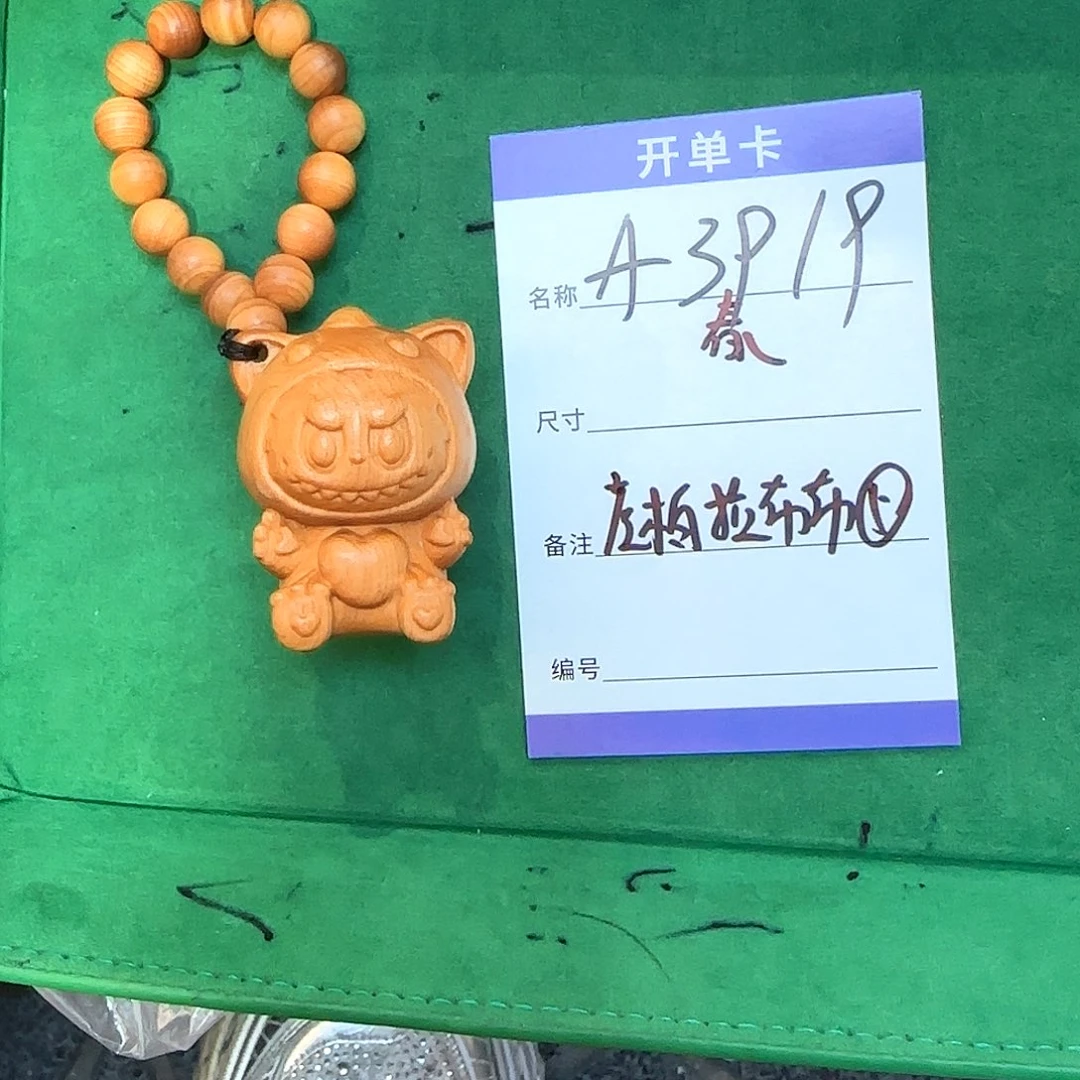 开单卡
名称 A3919
春
尺寸
备注 左柏拉布布
编号